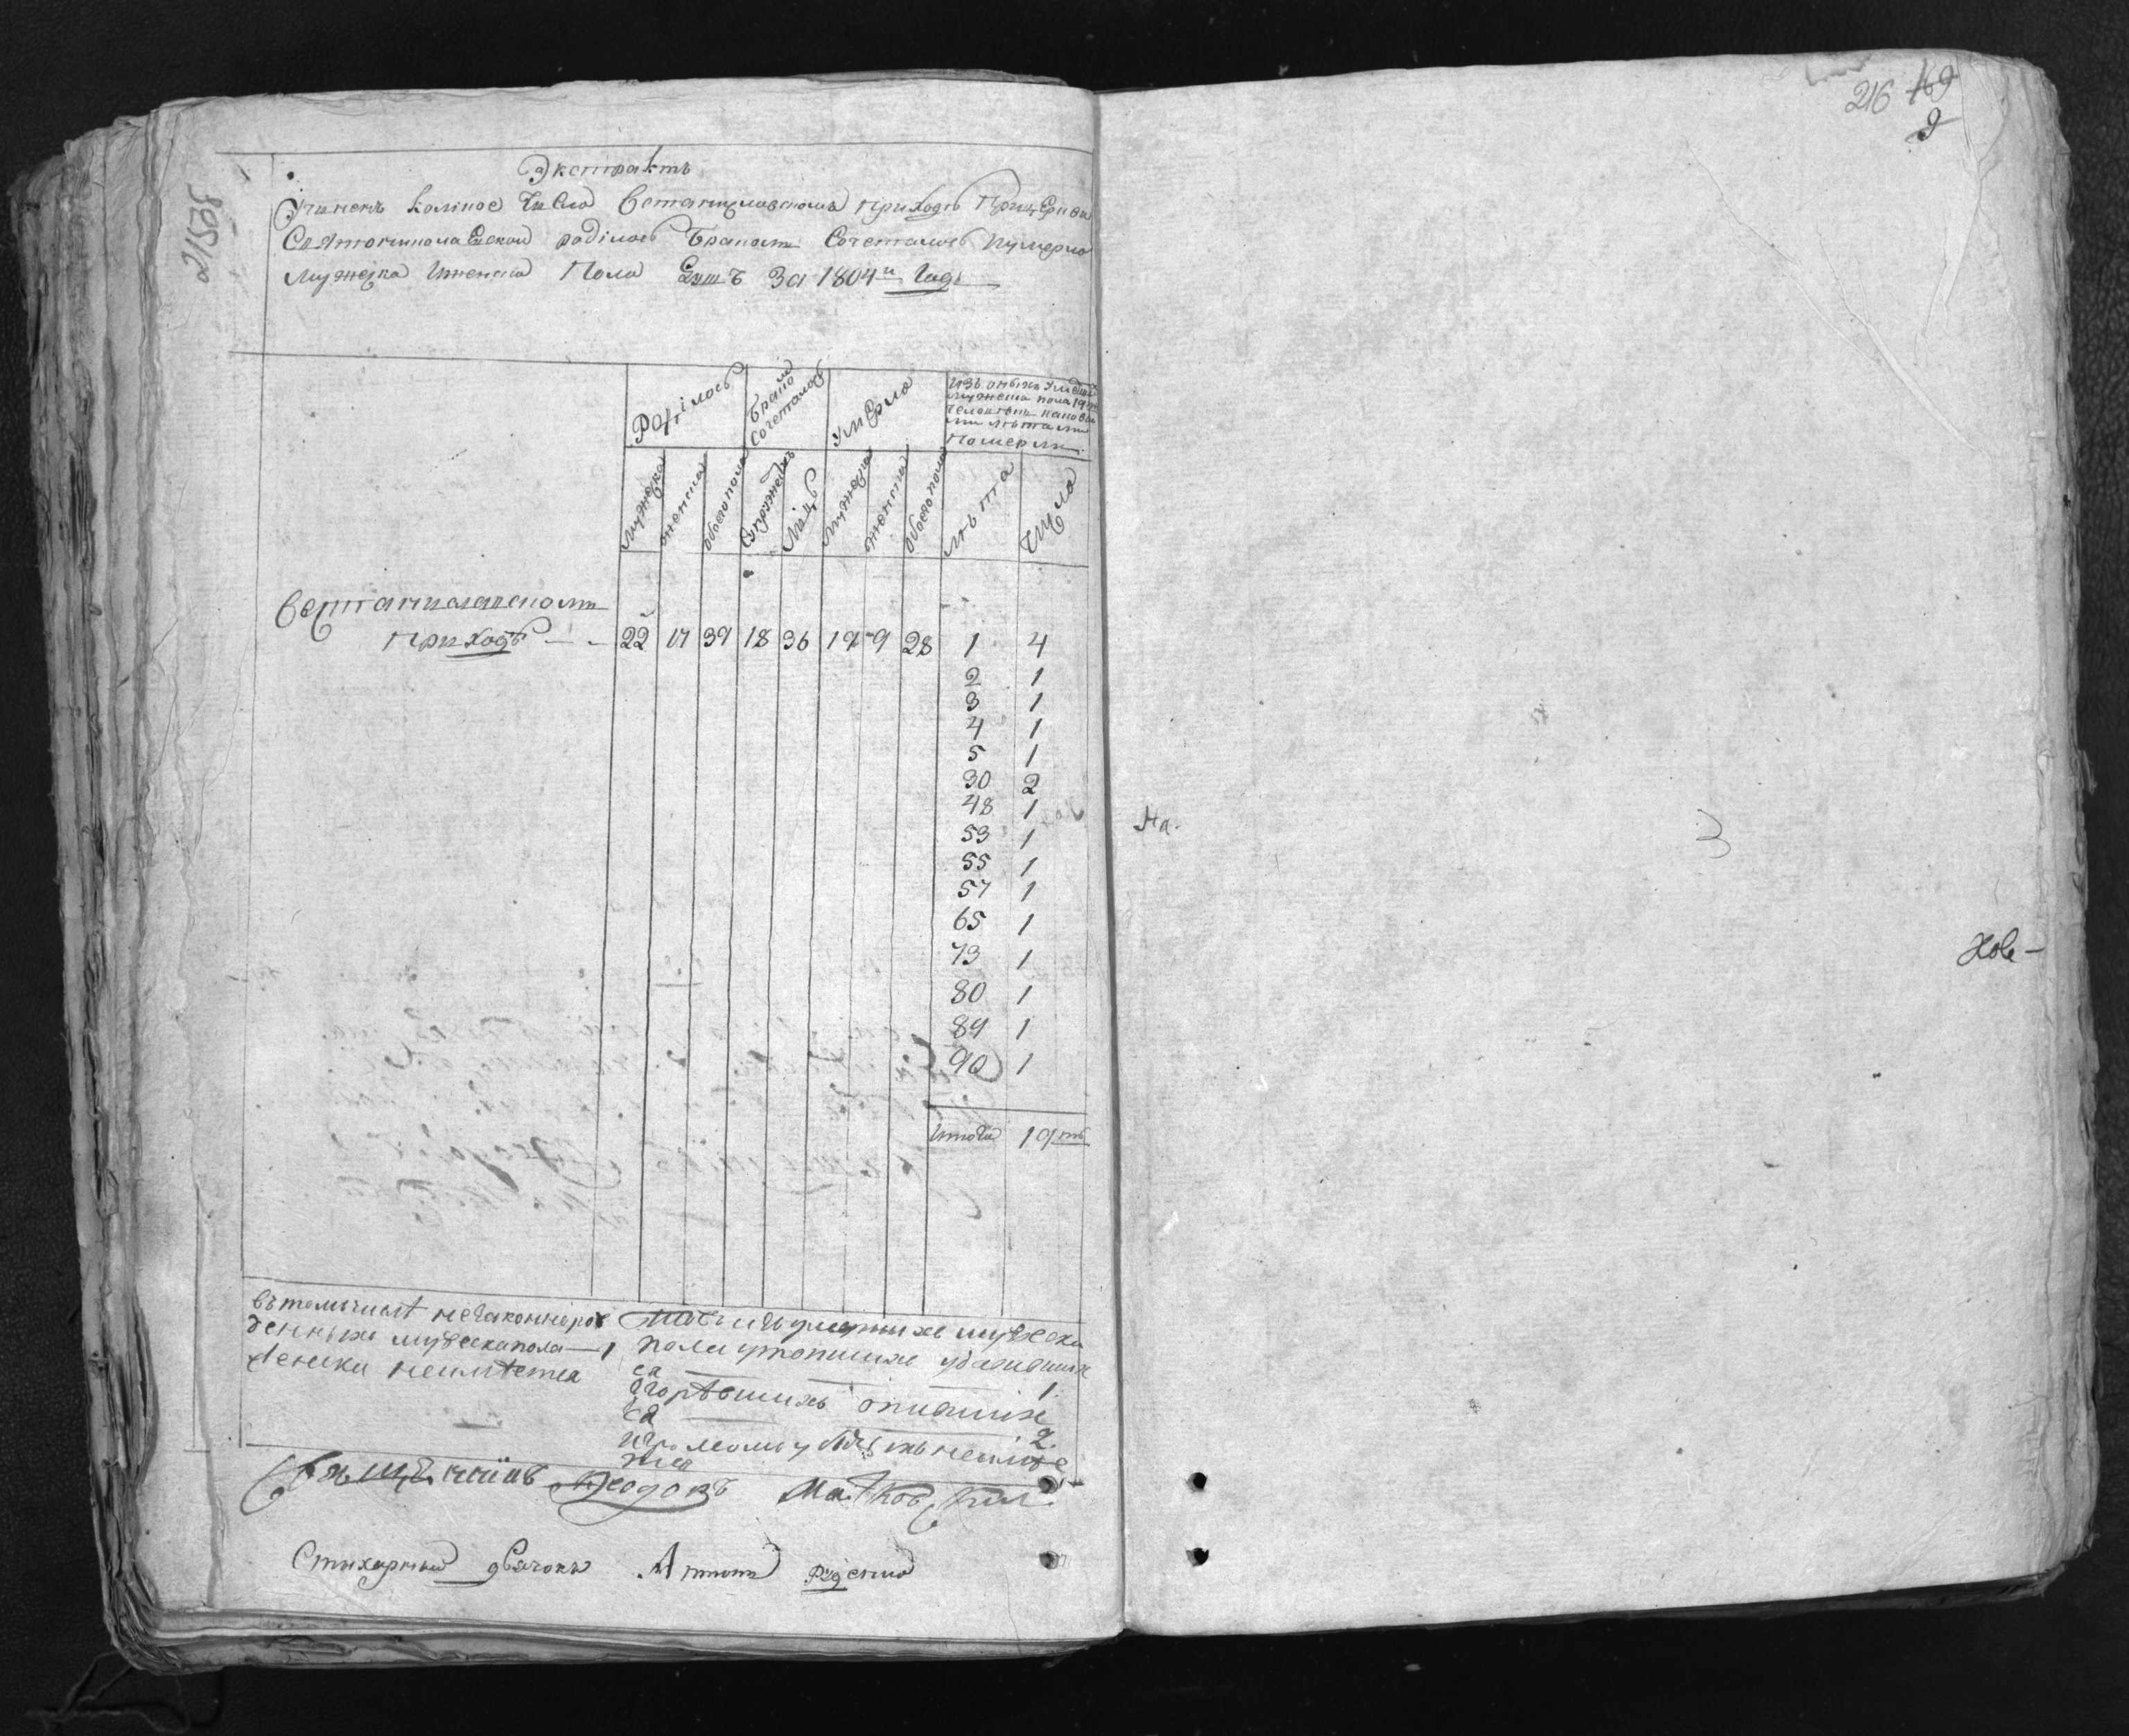 215об
Экстрактъ
Учиненъ Коликое Число Встаниславскомъ приходѣ При Церкви
Святониколаевской родiлось Бракомъ Сочеталось Иумерло
Мужеска Иженска Пола Душъ За 1804й Годъ
Родiлось
Бракомъ Сочеталось
Умерло
Изъ оныхъ Умершихъ
Мужеска пола 19
человекъ какова
ми лѣтами
Померли
мужеска
женска
обоего пола
Супружествъ
Лицъ
мужеска
женска
обоего пола
лѣта
Числа
Встаниславскомъ
Приходѣ — 22 17 39 18 36 19 9 28 1 4
2 1
3 1
4 1
5 1
30 2
48 1
53 1
55 1
57 1
65 1
73 1
80 1
89 1
90 1
Итого 19ть
въ томъ числѣ незаконнорож
денныхъ мужеска пола — 1
женска неимѣетца
умершихъ мужеска
пола утопшихъ удавивших
ся — 1
Згорѣвшихъ опившихся — 2
неимѣе
тся
Священникъ Феодоръ
Стихарный дьячокъ Антонъ
216 169
9
На.
3
Хов-